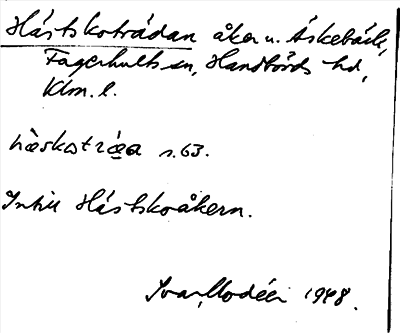 Hästskoträdan åker u. Äskebäck,
Fagerhults sn, Handbörds hd,
Klm. l.
hæskotræa s. 63.
Intill Hästskoåkern.
Ivar Modéer 1948.